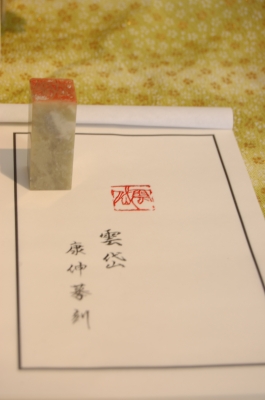 雲岱
康仲篆刻